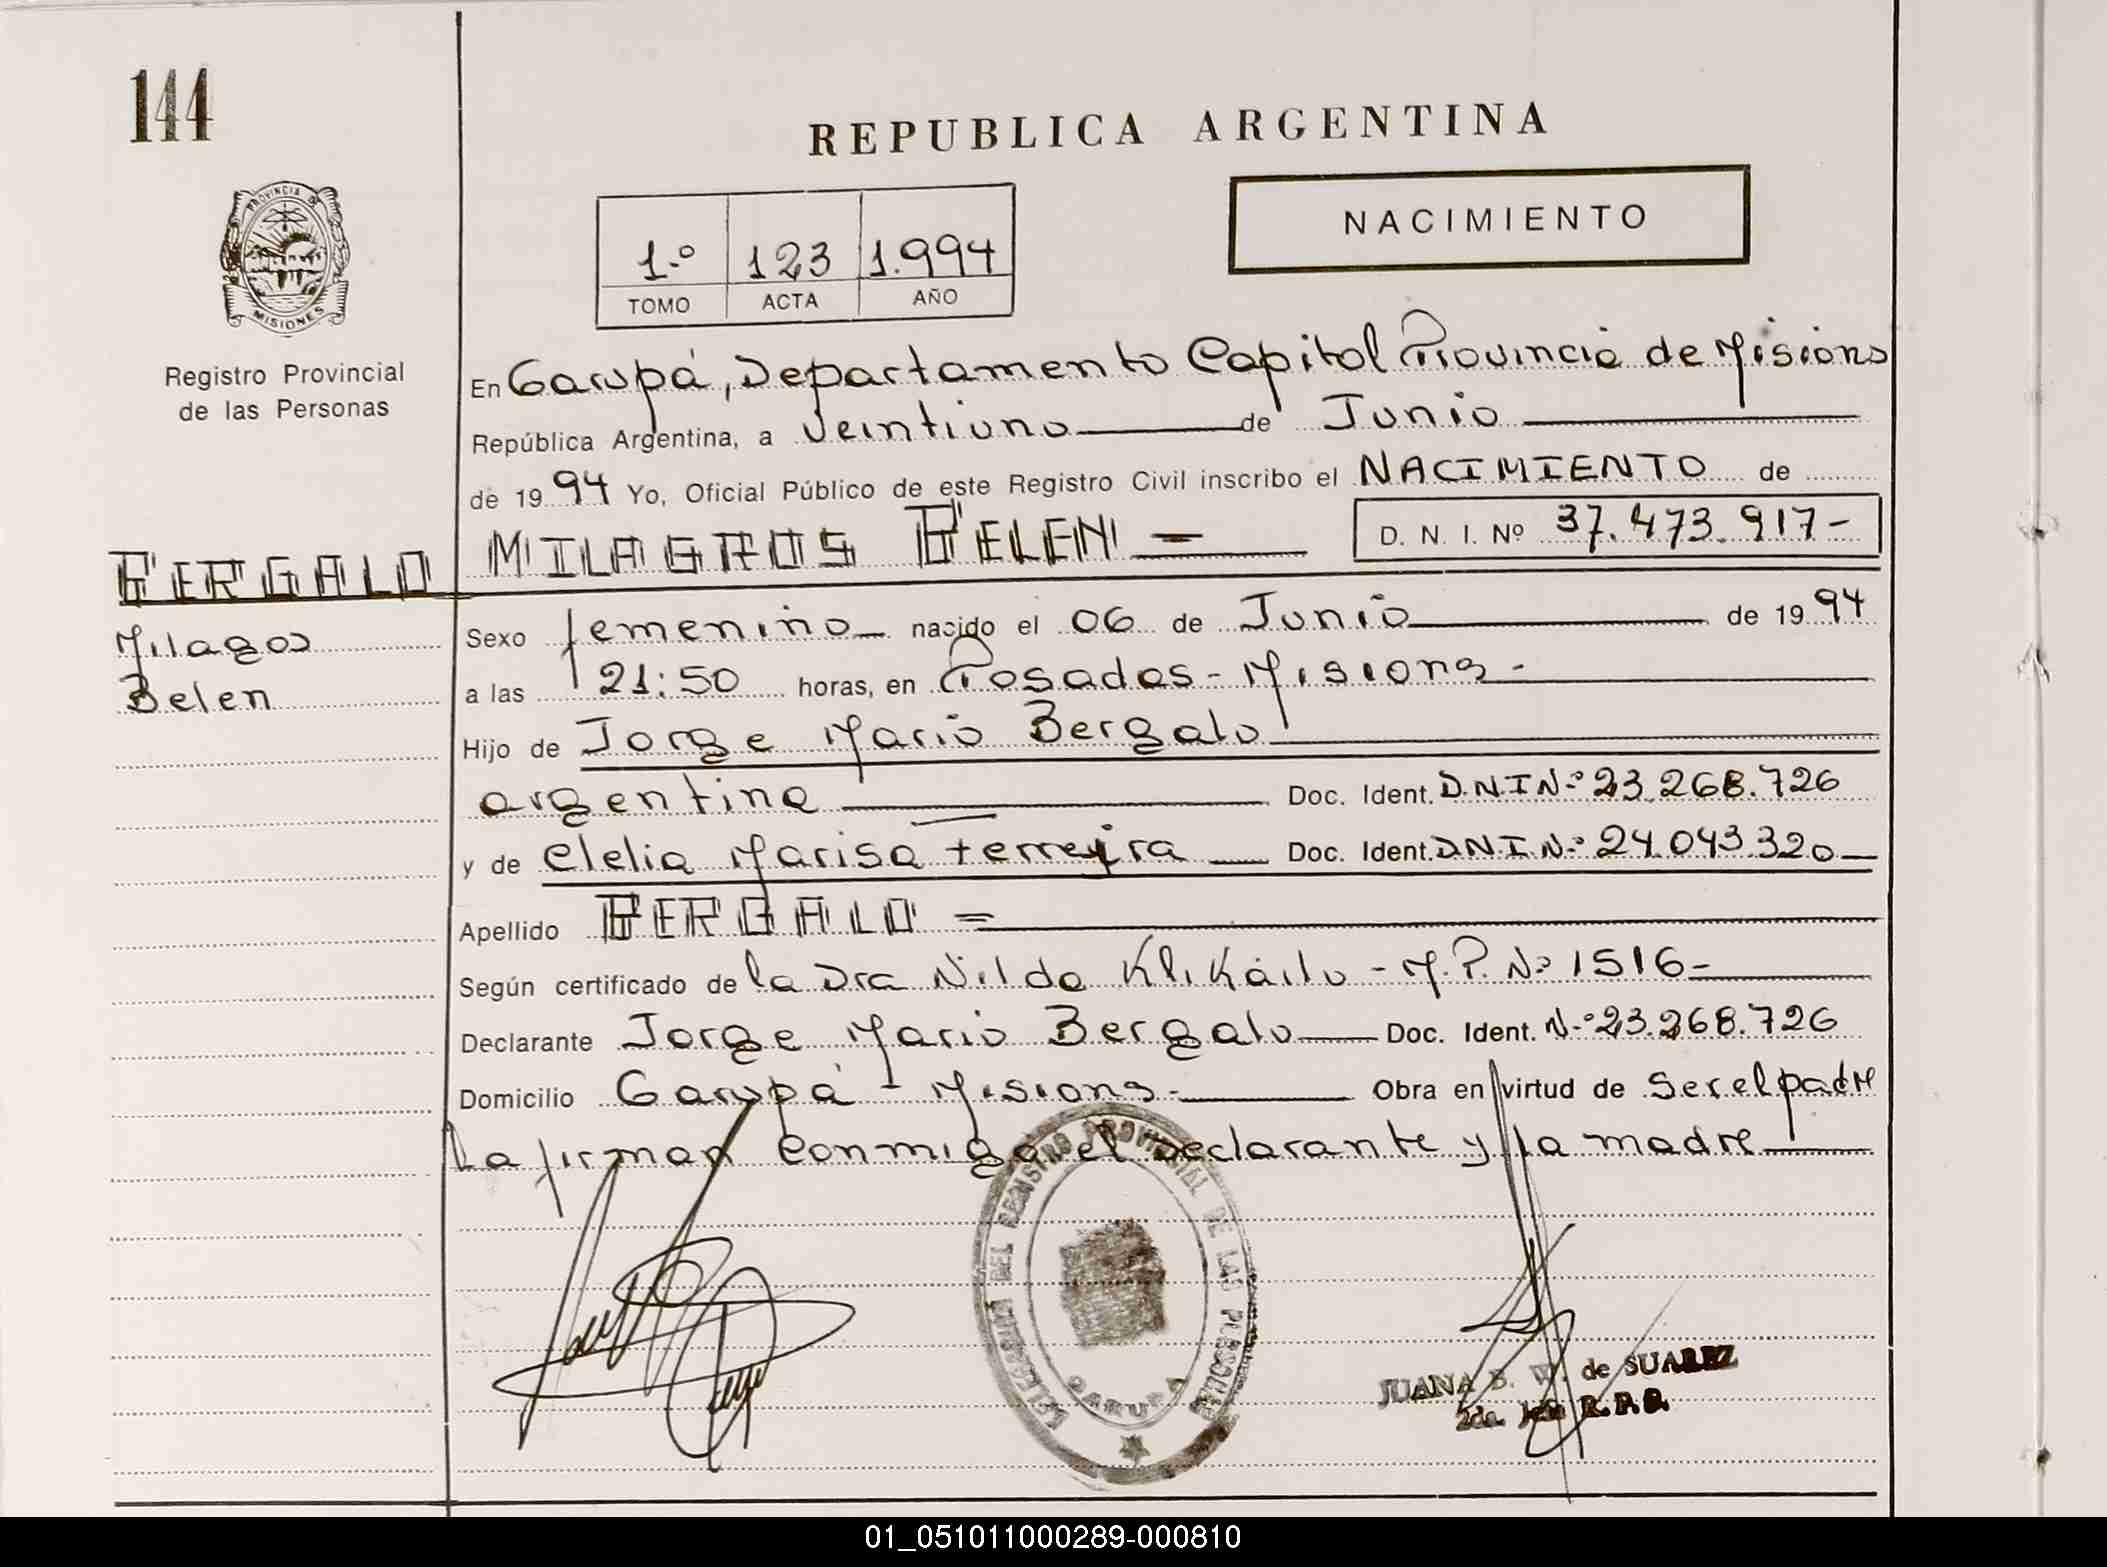 144
REPUBLICA ARGENTINA
PROVINCIA DE MISIONES
NACIMIENTO
1.º 123 1.994
TOMO ACTA AÑO
Registro Provincial
de las Personas
En Garupá, Departamento Capital Provincia de Misiones
República Argentina, a Veintiuno de Junio
de 1994 Yo, Oficial Público de este Registro Civil inscribo el NACIMIENTO de
BERGALO MILAGROS BELEN = D. N. I. Nº 37.473.917-
Milagos
Belen
Sexo femenino nacido el 06 de Junio de 1994
a las 21:50 horas, en Posadas - Misiones -
Hijo de Jorge Mario Bergalo
argentina Doc. Ident. D.N.I N.º 23.268.726
y de Clelia Marisa Ferreyra Doc. Ident. D.N.I N.º 24.043.320
Apellido BERGALO =
Según certificado de la Dra Nilda - M.P. Nº 1516-
Declarante Jorge Mario Bergalo Doc. Ident. N.º 23.268.726
Domicilio Garupá - Misiones - Obra en virtud de ser el padre
La firman conmigo el declarante y la madre
DEL REGISTRO PROVINCIAL DE LAS PERSONAS
GARUPA
JUANA B. W. de SUAREZ
2da. Jefe R.P.P.
01_051011000289-000810